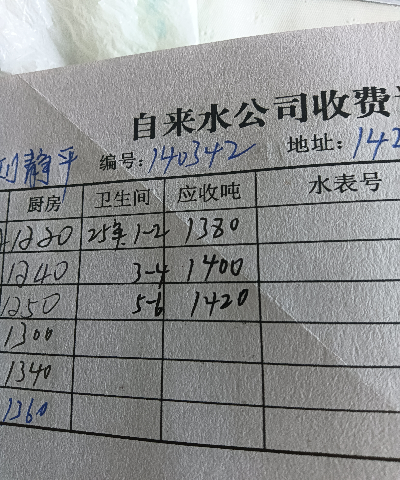 自来水公司收费
刘静平 编号:140342 地址:142
厨房 卫生间 应收吨 水表号
1220 25年1-2 1380
1240 3-4 1400
1250 5-6 1420
1300
1340
1360